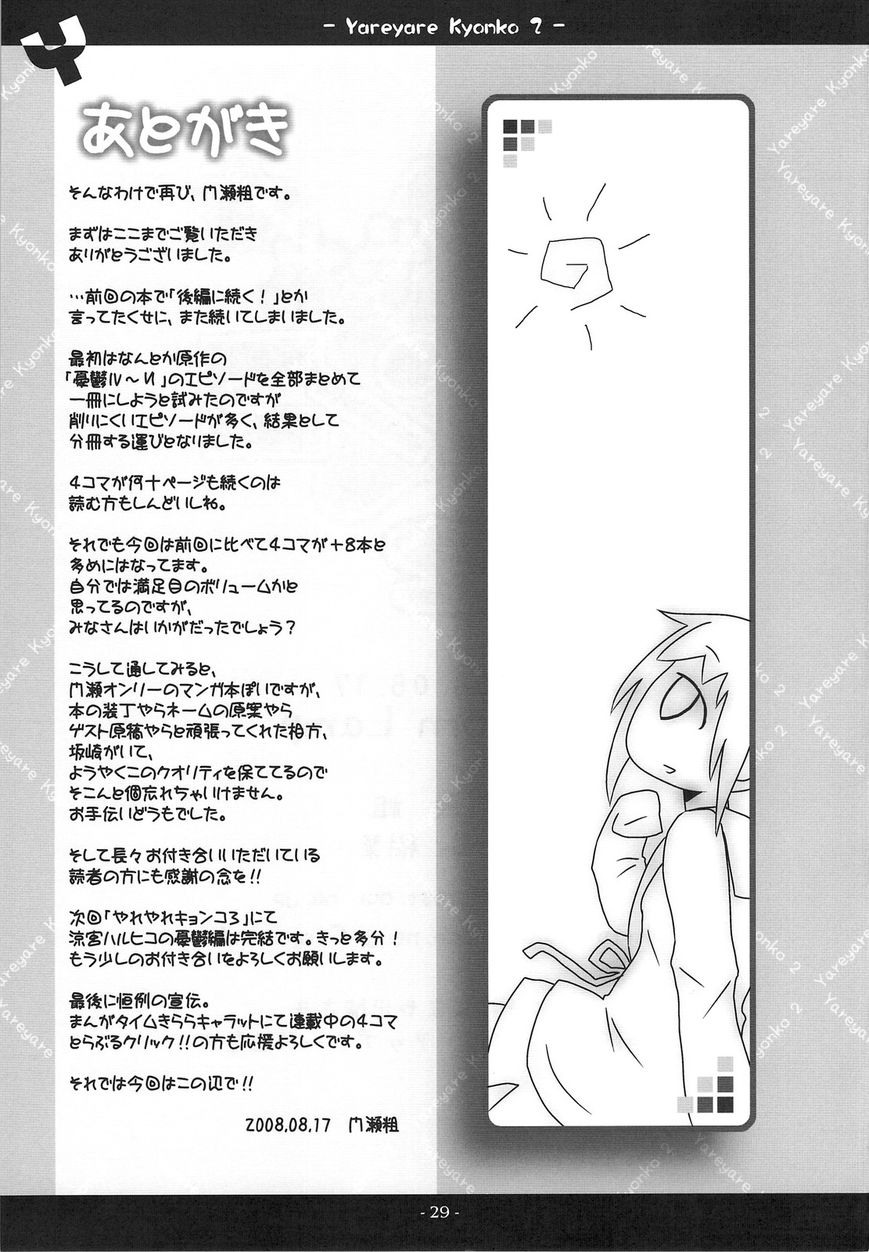 - Yareyare Kyonko 2 -
Y
あとがき
そんなわけで再び、門瀬粗です。
まずはここまでご覧いただき
ありがとうございました。
…前回の本で「後編に続く！」とか
言ってたくせに、また続いてしまいました。
最初はなんとか原作の
「憂鬱Ⅳ～Ⅵ」のエピソードを全部まとめて
一冊にしようと試みたのですが
削りにくいエピソードが多く、結果として
分冊する運びとなりました。
4コマが何十ページも続くのは
読む方もしんどいしね。
それでも今回は前回に比べて4コマが＋8本と
多めにはなってます。
自分では満足目のボリュームかと
思ってるのですが、
みなさんはいかがだったでしょう？
こうして通してみると、
門瀬オンリーのマンガ本ぽいですが、
本の装丁やらネームの原案やら
ゲスト原稿やらと頑張ってくれた相方、
坂崎がいて、
ようやくこのクオリティを保ててるので
そこんと個忘れちゃいけません。
お手伝いどうもでした。
そして長々お付き合いいただいている
読者の方にも感謝の念を!!
次回「やれやれキョンコ3」にて
涼宮ハルヒコの憂鬱編は完結です。きっと多分！
もう少しのお付き合いをよろしくお願いします。
最後に恒例の宣伝。
まんがタイムきららキャラットにて連載中の4コマ
とらぶるクリック!!の方も応援よろしくです。
それでは今回はこの辺で!!
2008.08.17　門瀬粗
Yareyare Kyonko 2
- 29 -